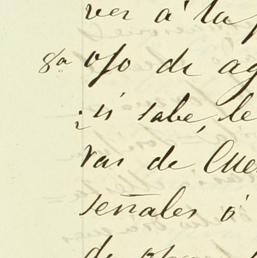 ver á la
8ª ojo de ag
si sabe, le
var de Cue
señales ó
de